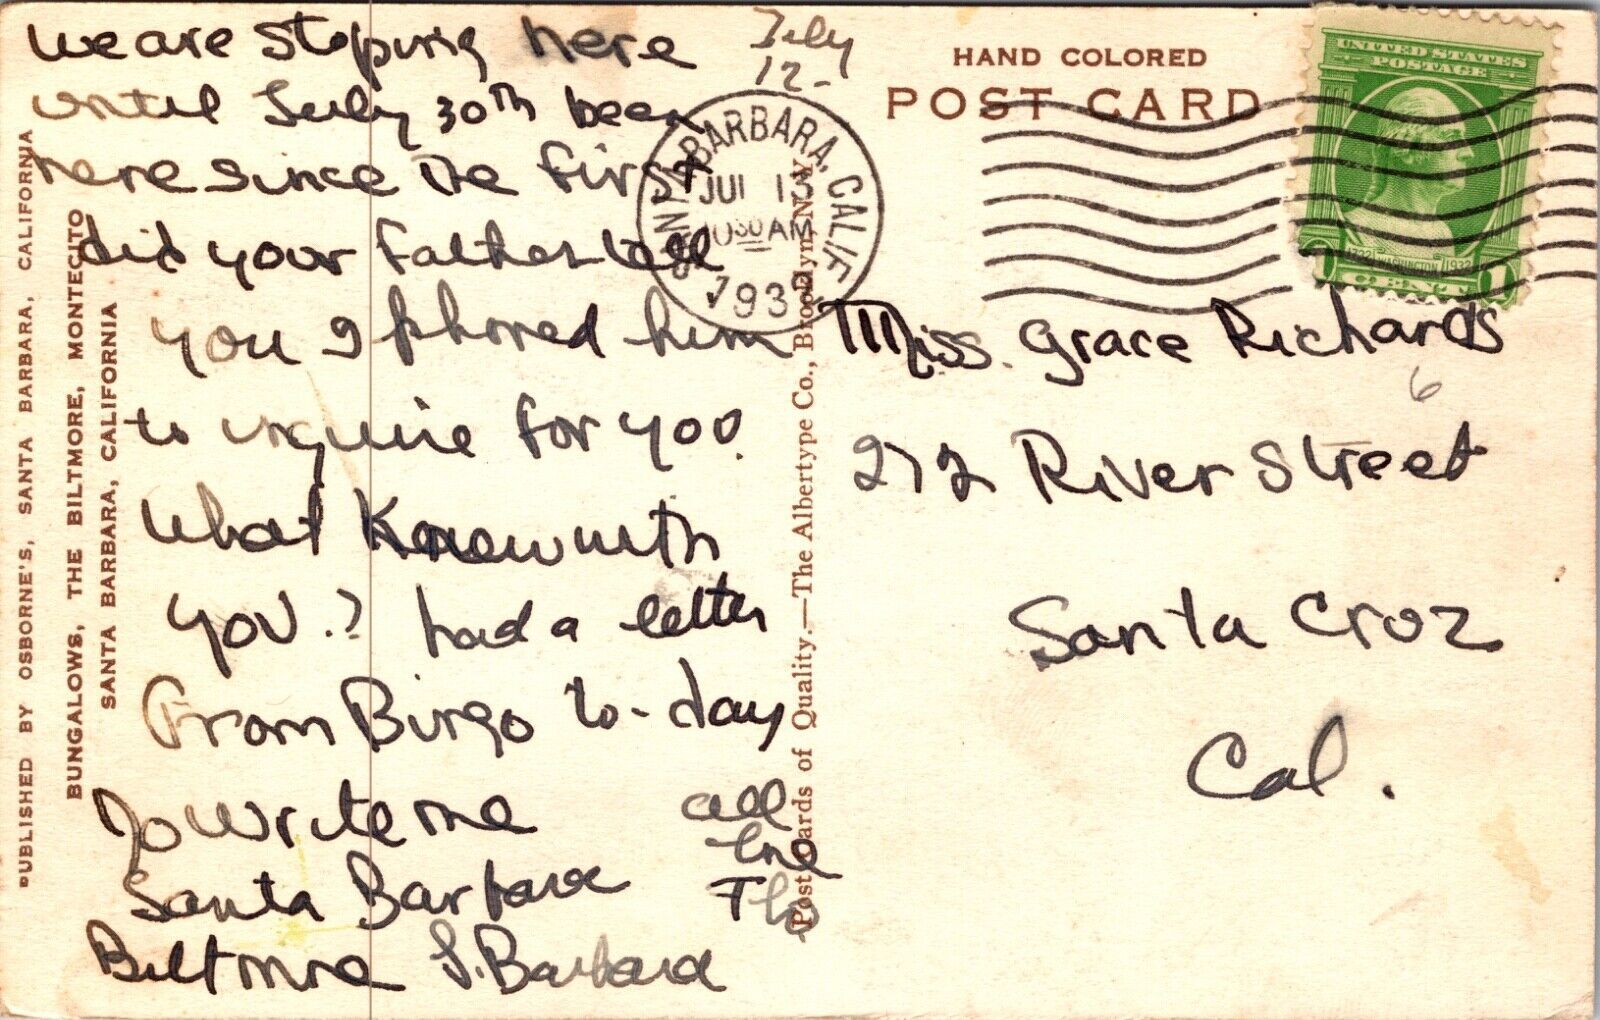 we are Stoping here
July
12-
until July 30th been
here since the first
did your Father tell
you I phoned him
to inquire for you.
What Knew with
you.? had a letter
From Bingo to-day
Do write me
Santa Barbara
Biltmore S. Barbara
all
love
HAND COLORED
POST CARD
SANTA BARBARA, CALIF.
JUL 13
1030 AM
193
UNITED STATES
POSTAGE
1732 WASHINGTON 1932
1 CENT 1
Miss. Grace Richards
6
272 River Street
Santa Cruz
Cal.
PUBLISHED BY OSBORNE'S, SANTA BARBARA, CALIFORNIA
BUNGALOWS, THE BILTMORE, MONTECITO
SANTA BARBARA, CALIFORNIA
Post Cards of Quality.—The Albertype Co., Brooklyn, N. Y.